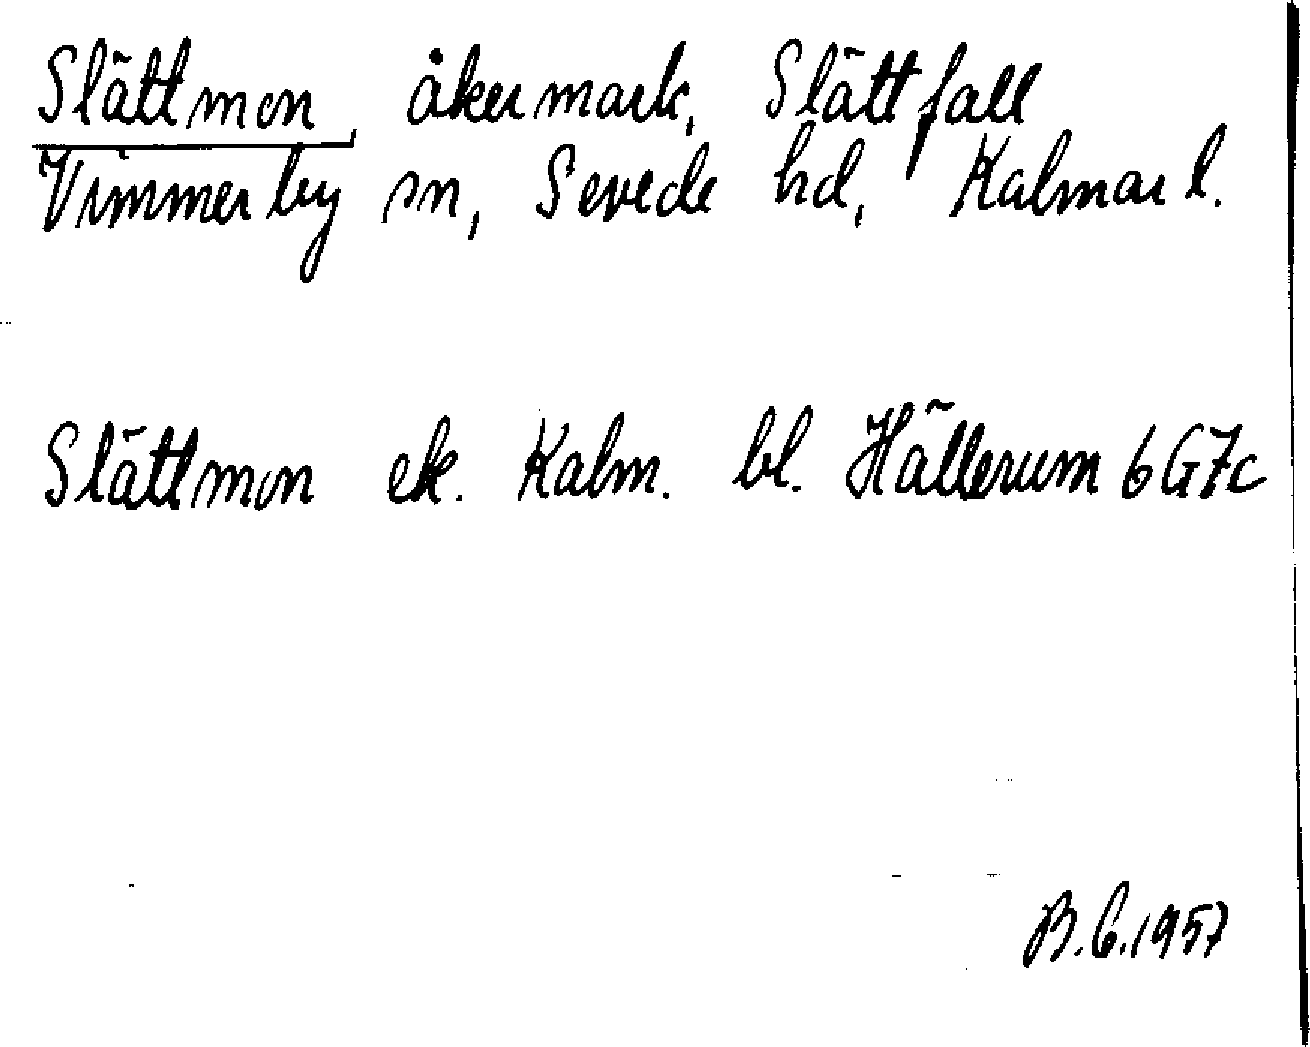 Slättmon, åkermark, Slättfall
Vimmerby sn, Sevede hd, Kalmar l.
Slättmon ek. Kalm. bl. Hällerum 6G7c
B.G.1957